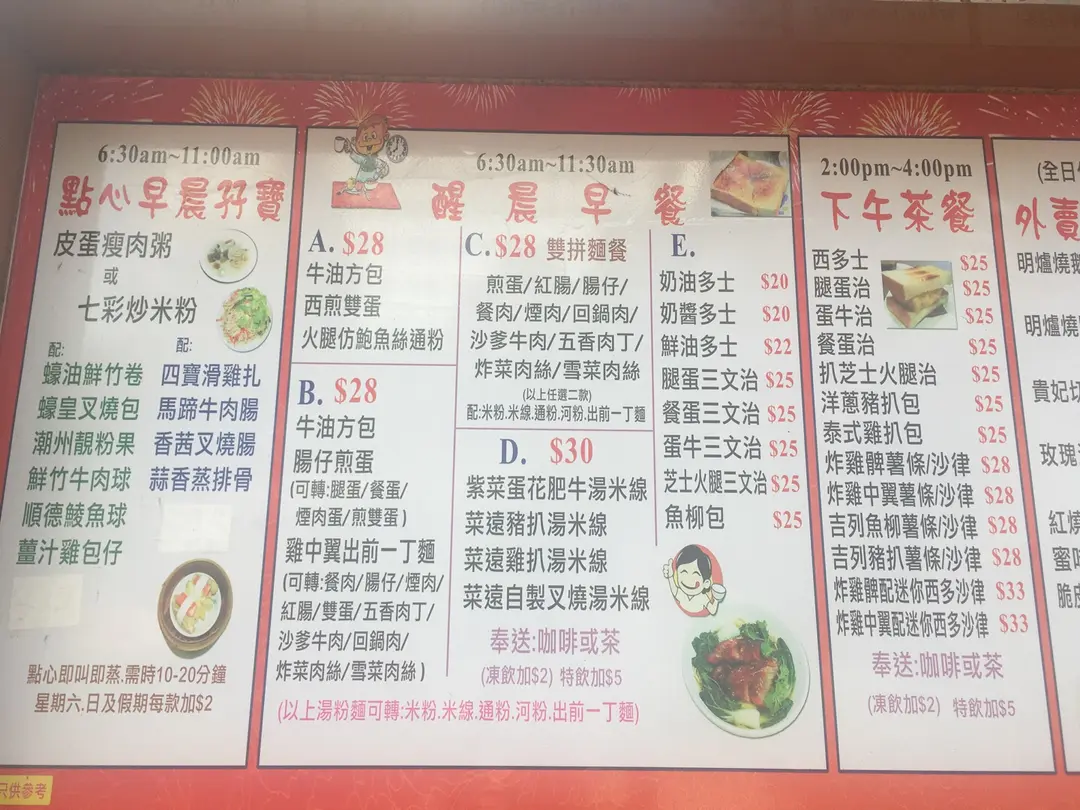 6:30am~11:00am
點心早晨孖寶
皮蛋瘦肉粥
或
七彩炒米粉
配:
蠔油鮮竹卷
蠔皇叉燒包
潮州靚粉果
鮮竹牛肉球
順德鯪魚球
薑汁雞包仔
配:
四寶滑雞扎
馬蹄牛肉腸
香茜叉燒腸
蒜香蒸排骨
點心即叫即蒸.需時10-20分鐘
星期六.日及假期每款加$2
6:30am~11:30am
醒晨早餐
A. $28
牛油方包
西煎雙蛋
火腿仿鮑魚絲通粉
B. $28
牛油方包
腸仔煎蛋
(可轉:腿蛋/餐蛋/
煙肉蛋/煎雙蛋)
雞中翼出前一丁麵
(可轉:餐肉/腸仔/煙肉/
紅腸/雙蛋/五香肉丁/
沙爹牛肉/回鍋肉/
炸菜肉絲/雪菜肉絲)
C. $28 雙拼麵餐
煎蛋/紅腸/腸仔/
餐肉/煙肉/回鍋肉/
沙爹牛肉/五香肉丁/
炸菜肉絲/雪菜肉絲
(以上任選二款)
配:米粉.米線.通粉.河粉.出前一丁麵
D. $30
紫菜蛋花肥牛湯米線
菜遠豬扒湯米線
菜遠雞扒湯米線
菜遠自製叉燒湯米線
奉送:咖啡或茶
(凍飲加$2) 特飲加$5
(以上湯粉麵可轉:米粉.米線.通粉.河粉.出前一丁麵)
E.
奶油多士 $20
奶醬多士 $20
鮮油多士 $22
腿蛋三文治 $25
餐蛋三文治 $25
蛋牛三文治 $25
芝士火腿三文治 $25
魚柳包 $25
2:00pm~4:00pm
下午茶餐
西多士 $25
腿蛋治 $25
蛋牛治 $25
餐蛋治 $25
扒芝士火腿治 $25
洋蔥豬扒包 $25
泰式雞扒包 $25
炸雞髀薯條/沙律 $28
炸雞中翼薯條/沙律 $28
吉列魚柳薯條/沙律 $28
吉列豬扒薯條/沙律 $28
炸雞髀配迷你西多沙律 $33
炸雞中翼配迷你西多沙律 $33
奉送:咖啡或茶
(凍飲加$2) 特飲加$5
(全日
外賣
明爐燒鵝
明爐燒
貴妃
玫瑰
紅燒
蜜
脆
只供參考